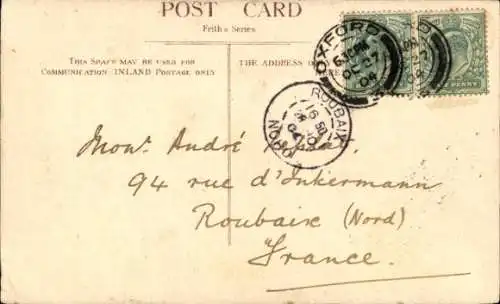 POST CARD
Frith's Series
THIS SPACE MAY BE USED FOR
COMMUNICATION INLAND POSTAGE ONLY
THE ADDRESS
OXFORD
ROUBAIX
NORD
PENNY
Monr. André
94 rue d'Inkermann
Roubaix (Nord)
France.